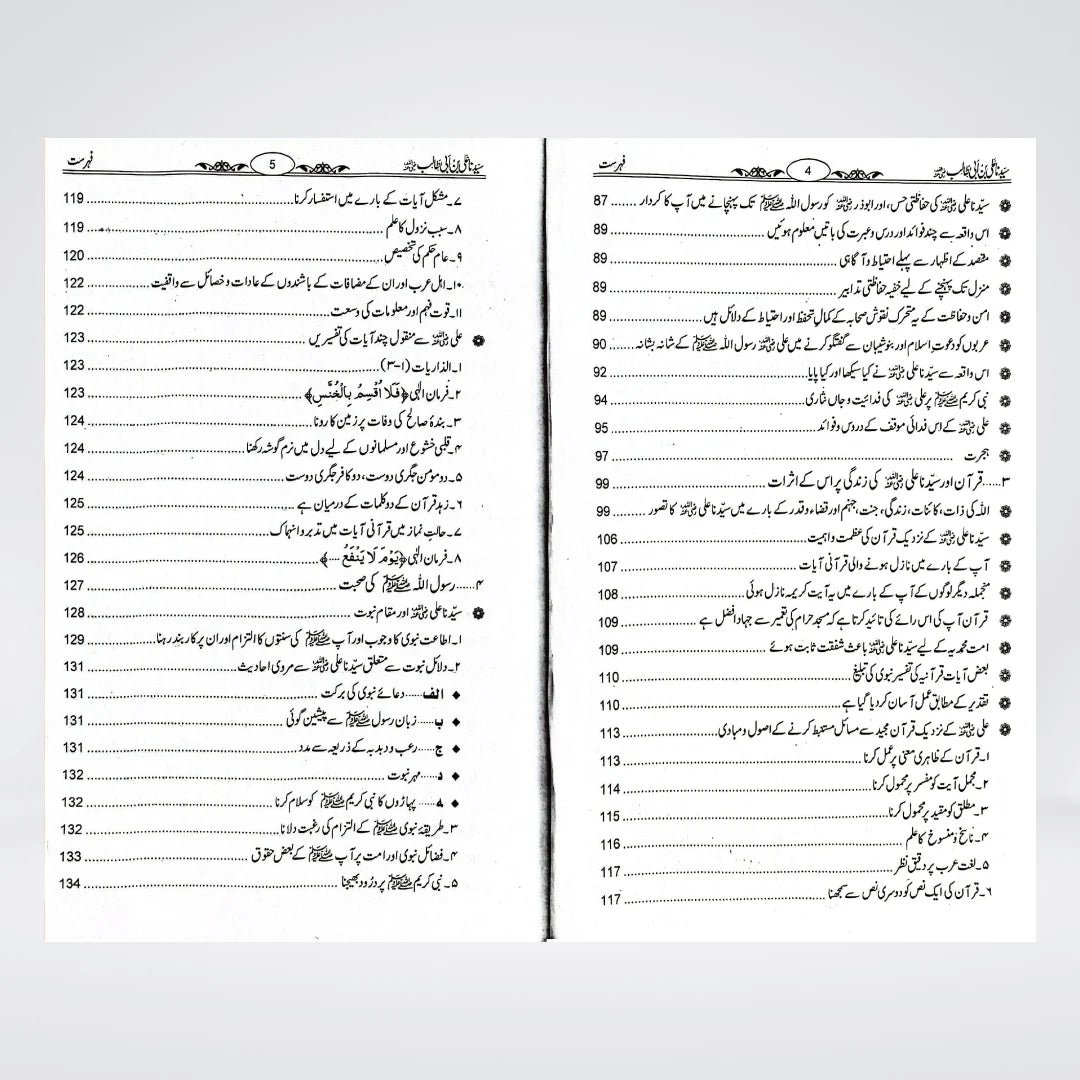 سیّدنا علی بن ابی طالب رضی اللہ عنہ 4 فہرست
سیّدنا علی رضی اللہ عنہ کی حفاظتی حس، اور ابوذر رضی اللہ عنہ کو رسول اللہ ﷺ تک پہنچانے میں آپ کا کردار ....... 87
اس واقعہ سے چند فوائد اور درس و عبرت کی باتیں معلوم ہوئیں ....... 89
مقصد کے اظہار سے پہلے احتیاط و آگاہی ....... 89
منزل تک پہنچنے کے لیے خفیہ حفاظتی تدابیر ....... 89
امن و حفاظت کے یہ متحرک نقوش صحابہ کے کمالِ تحفظ اور احتیاط کے دلائل ہیں ....... 89
عربوں کو دعوتِ اسلام اور بنو شیبان سے گفتگو کرنے میں علی رضی اللہ عنہ رسول اللہ ﷺ کے شانہ بشانہ ....... 90
اس واقعہ سے سیّدنا علی رضی اللہ عنہ نے کیا سیکھا اور کیا پایا ....... 92
نبی کریم ﷺ پر علی رضی اللہ عنہ کی فدائیت و جاں نثاری ....... 94
علی رضی اللہ عنہ کے اس فدائی موقف کے دروس و فوائد ....... 95
ہجرت ....... 97
۳..... قرآن اور سیّدنا علی رضی اللہ عنہ کی زندگی پر اس کے اثرات ....... 99
اللہ کی ذات، کائنات، زندگی، جنت، جہنم اور قضاء و قدر کے بارے میں سیّدنا علی رضی اللہ عنہ کا تصور ....... 99
سیّدنا علی رضی اللہ عنہ کے نزدیک قرآن کی عظمت و اہمیت ....... 106
آپ کے بارے میں نازل ہونے والی قرآنی آیات ....... 107
منجملہ دیگر لوگوں کے آپ کے بارے میں یہ آیت کریمہ نازل ہوئی ....... 108
قرآن آپ کی اس رائے کی تائید کرتا ہے کہ مسجد حرام کی تعمیر سے جہاد افضل ہے ....... 109
امت محمدیہ کے لیے سیّدنا علی رضی اللہ عنہ باعث شفقت ثابت ہوئے ....... 109
بعض آیات قرآنیہ کی تفسیر نبوی کی تبلیغ ....... 110
تقدیر کے مطابق عمل آسان کر دیا گیا ہے ....... 110
علی رضی اللہ عنہ کے نزدیک قرآن مجید سے مسائل مستنبط کرنے کے اصول و مبادی ....... 113
۱۔ قرآن کے ظاہری معنی پر عمل کرنا ....... 113
۲۔ مجمل آیت کو مفسر پر محمول کرنا ....... 114
۳۔ مطلق کو مقید پر محمول کرنا ....... 115
۴۔ ناسخ و منسوخ کا علم ....... 116
۵۔ لغت عرب پر دقیق نظر ....... 117
۶۔ قرآن کی ایک نص کو دوسری نص سے سمجھنا ....... 117
سیّدنا علی بن ابی طالب رضی اللہ عنہ 5 فہرست
۷۔ مشکل آیات کے بارے میں استفسار کرنا ....... 119
۸۔ سبب نزول کا علم ....... 119
۹۔ عام حکم کی تخصیص ....... 120
۱۰۔ اہل عرب اور ان کے مضافات کے باشندوں کے عادات و خصائل سے واقفیت ....... 122
۱۱۔ قوت فہم اور معلومات کی وسعت ....... 122
علی رضی اللہ عنہ سے منقول چند آیات کی تفسیریں ....... 123
۱۔ الذاریات (۱-۳) ....... 123
۲۔ فرمان الٰہی ﴿فَلَا اُقْسِمُ بِالْخُنَّسِ﴾ ....... 123
۳۔ بندۂ صالح کی وفات پر زمین کا رونا ....... 124
۴۔ قلبی خشوع اور مسلمانوں کے لیے دل میں نرم گوشہ رکھنا ....... 124
۵۔ دو مومن جگری دوست، دو کافر جگری دوست ....... 124
۶۔ زہد قرآن کے دو کلمات کے درمیان ہے ....... 125
۷۔ حالت نماز میں قرآنی آیات میں تدبر و انہماک ....... 125
۸۔ فرمان الٰہی ﴿یَوْمَ لَا یَنْفَعُ ....﴾ ....... 126
۴..... رسول اللہ ﷺ کی صحبت ....... 127
سیّدنا علی رضی اللہ عنہ اور مقام نبوت ....... 128
۱۔ اطاعت نبوی کا وجوب اور آپ ﷺ کی سنتوں کا التزام اور ان پر کاربند رہنا ....... 129
۲۔ دلائل نبوت سے متعلق سیّدنا علی رضی اللہ عنہ سے مروی احادیث ....... 131
الف..... دعائے نبوی کی برکت ....... 131
ب..... زبان رسول ﷺ سے پیشین گوئی ....... 131
ج..... رعب و دبدبہ کے ذریعہ سے مدد ....... 131
د..... مہر نبوت ....... 132
ہ..... پہاڑوں کا نبی کریم ﷺ کو سلام کرنا ....... 132
۳۔ طریقۂ نبوی ﷺ کے التزام کی رغبت دلانا ....... 132
۴۔ فضائل نبوی اور امت پر آپ ﷺ کے بعض حقوق ....... 133
۵۔ نبی کریم ﷺ پر درود بھیجنا ....... 134